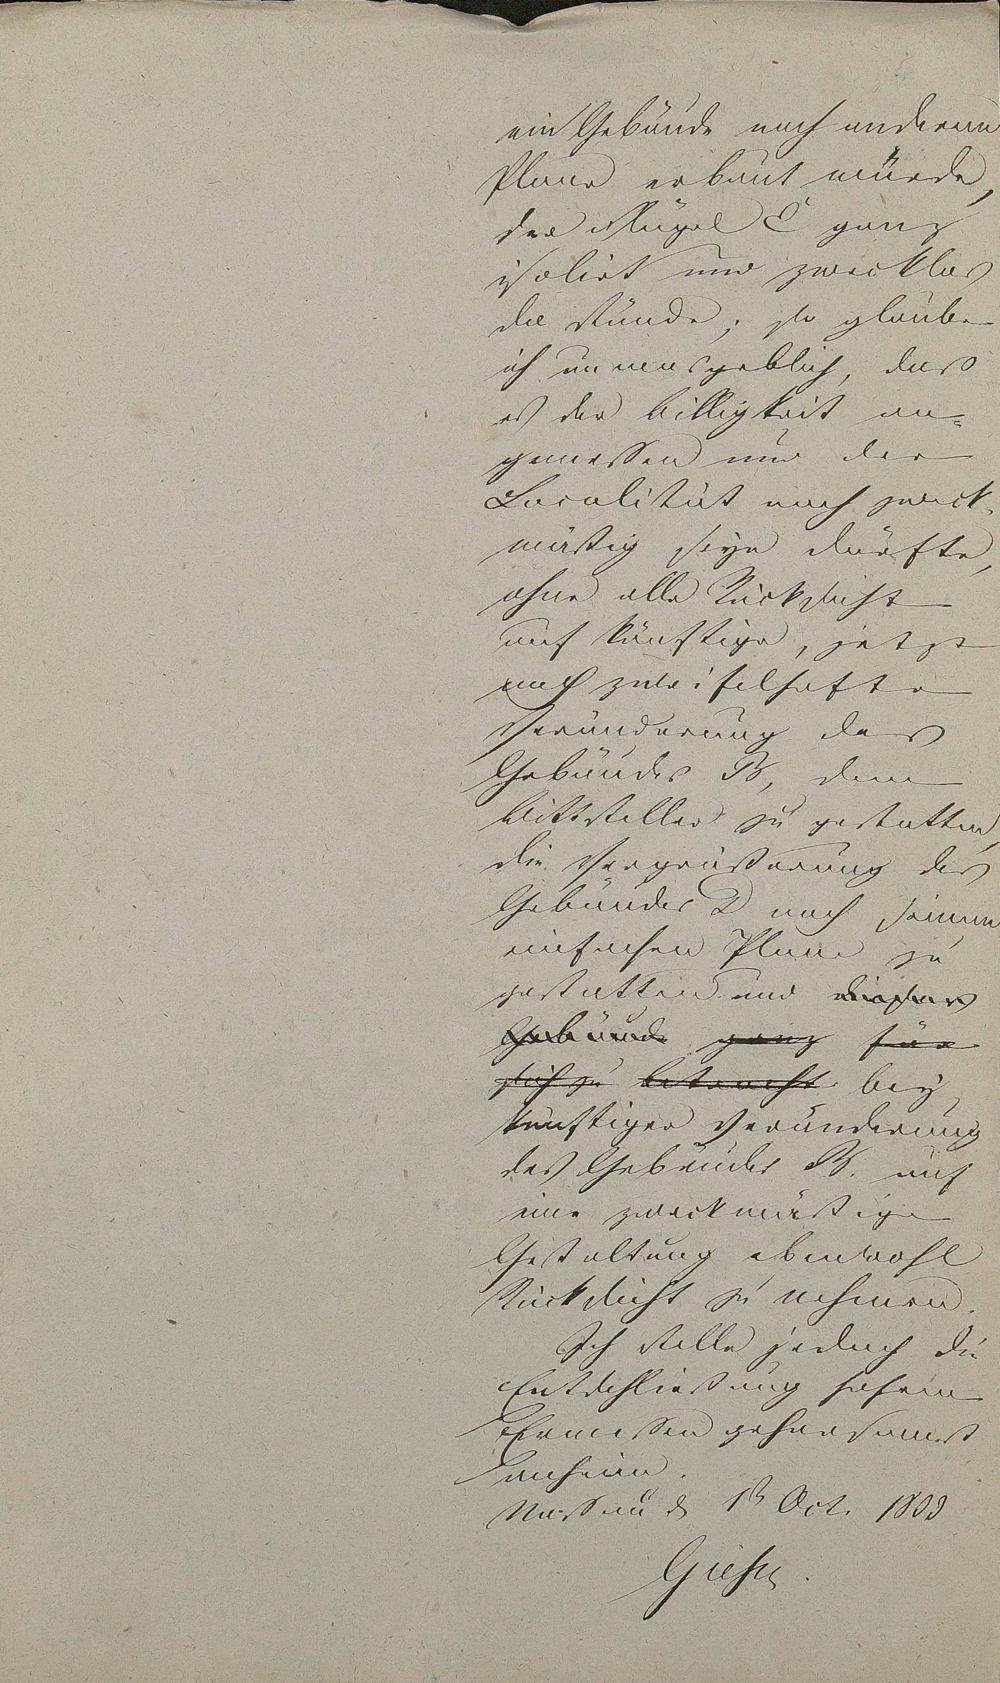 ein Gebäude nach anderem
Plane erbaut würde,
der Flügel C ganz
isolirt und zwecklos
da stünde; so glaube
ich unmasgeblich, dass
es der Billigkeit an-
gemessen und der
Localität nach zweck-
mäßig seyn dürfte,
ohne alle Rücksicht
auf künftige, jetzt
noch zweifelhafte
Veränderung des
Gebäudes B, dem
Bittsteller zu gestatten,
die Vergrößerung des
Gebäudes D nach seinem
einfachen Plane zu
gestatten und dieses
Gebäude ganz für
sich zu betracht. bey
künftiger Veränderung
des Gebäudes B. auf
eine zweckmäßige
Gestaltung ebenwohl
Rücksicht zu nehmen.
Ich stelle jedoch die
Entschließung hohem
Ermessen gehorsamst
anheim.
Nassau d. 1t Oct. 1833